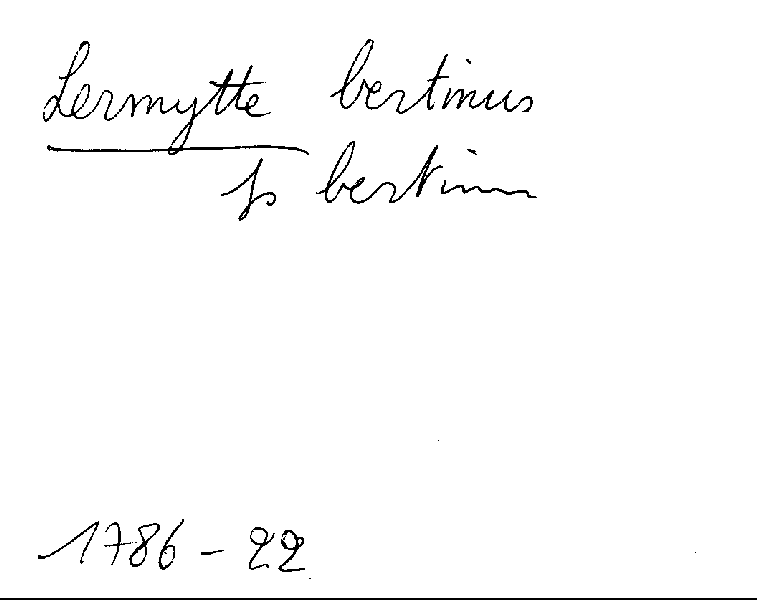 Lermytte bertinus
fs bertinus
1786 - 22